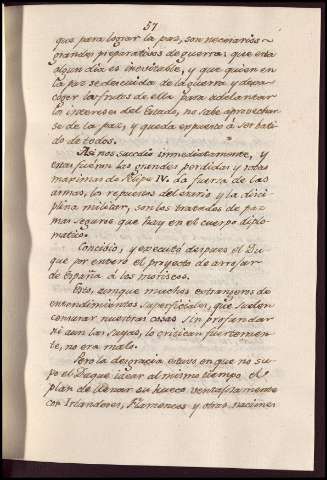 57
que para lograr la paz, son necesarios
grandes preparativos de guerra, que esta
algun dia es inevitable, y que quien en
la paz se descuida de la guerra y dexa
coger los frutos de ella para adelantar
los intereses del Estado, no sabe aprovechar
se de la paz, y queda expuesto á ser bati
do de todos.
Asi nos sucedio immediatamente, y
estas fueron las grandes perdidas y
maximas de Felipe IV. La fuerza de las
armas, lo repuestos del erario y la disci
plina militar, son los tratados de paz
mas seguros que hay en el cuerpo diplo
matico.
Concivio, y executó despues el Du
que por entero el proyecto de arrojar
de España á los moriscos.
Esto, aunque muchos extrangeros de
entendimientos superficiales, que suelen
censurar nuestras cosas sin profundar
ni aun las suyas, lo critican fuertemen
te, no era malo.
Pero la desgracia estuvo en que no su
po el Duque idear al mismo tiempo el
plan de llenar su hueco ventajosamente
con Irlandeses, Flamencos y otras naciones